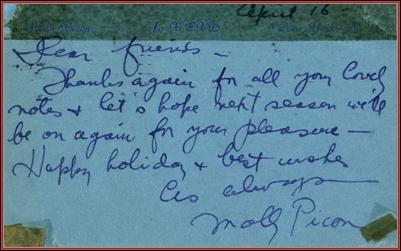 April 16 -
Dear friends -
Thanks again for all your lovely
notes & let's hope next season we'll
be on again for your pleasure -
Happy holiday & best wishes
As always
Molly Picon